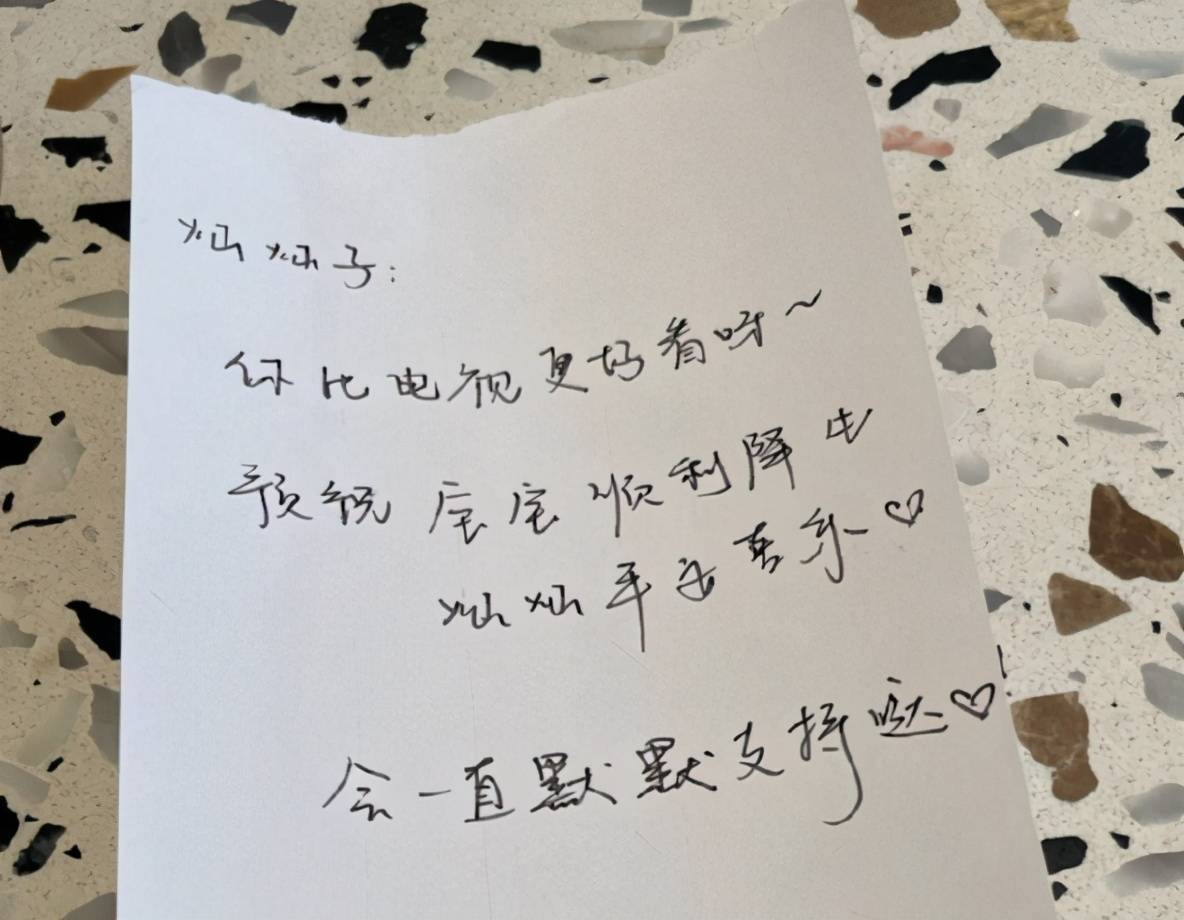 灿灿子:
你比电视更好看呀~
预祝宝宝顺利降生
灿灿平安喜乐♡
会一直默默支持哒♡